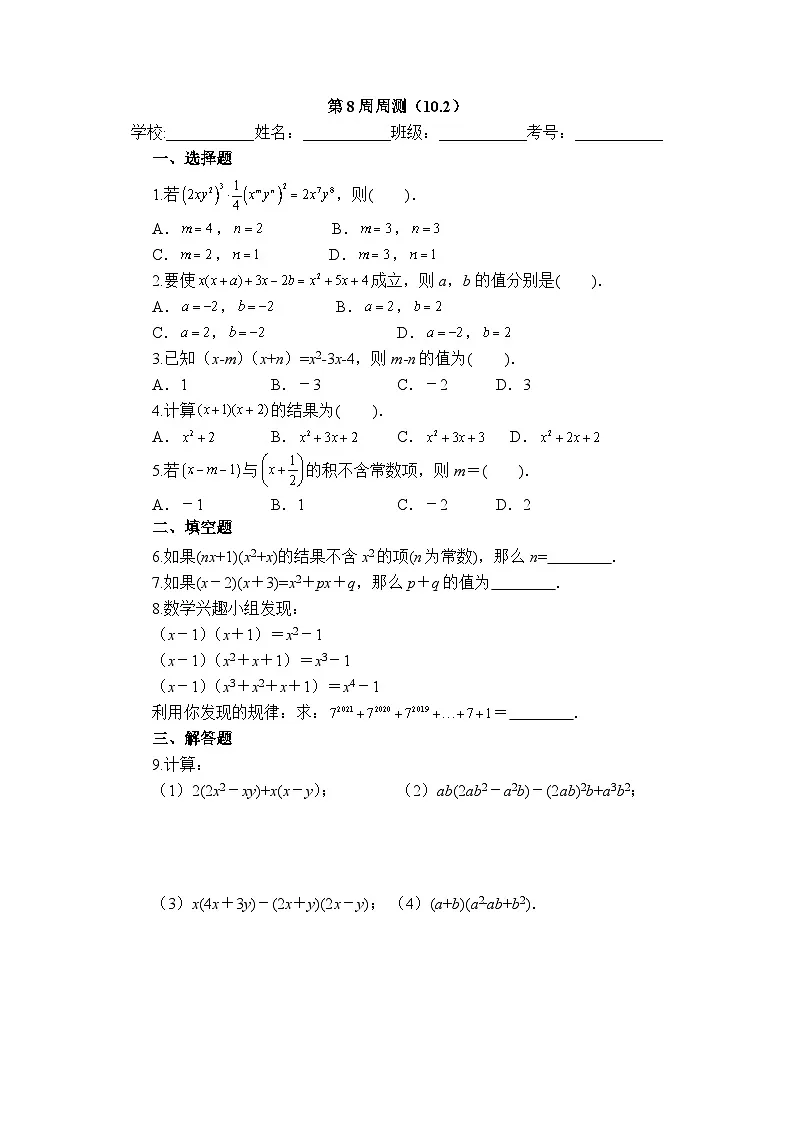 第8周周测（10.2）
学校:___________姓名：___________班级：___________考号：___________
一、选择题
1.若(2xy²)³·¼(xᵐyⁿ)²=2x⁷y⁸，则(　　)．
A．m=4，n=2　　B．m=3，n=3
C．m=2，n=1　　D．m=3，n=1
2.要使x(x+a)+3x-2b=x²+5x+4成立，则a，b的值分别是(　　)．
A．a=-2，b=-2　　B．a=2，b=2
C．a=2，b=-2　　D．a=-2，b=2
3.已知（x-m）（x+n）=x²-3x-4，则m-n的值为(　　)．
A．1　　B．-3　　C．-2　　D．3
4.计算(x+1)(x+2)的结果为(　　)．
A．x²+2　　B．x²+3x+2　　C．x²+3x+3　　D．x²+2x+2
5.若(x-m-1)与(x+½)的积不含常数项，则m＝(　　)．
A．-1　　B．1　　C．-2　　D．2
二、填空题
6.如果(nx+1)(x²+x)的结果不含x²的项(n为常数)，那么n=________．
7.如果(x－2)(x＋3)=x²＋px＋q，那么p＋q的值为________．
8.数学兴趣小组发现：
（x－1）（x＋1）＝x²－1
（x－1）（x²＋x＋1）＝x³－1
（x－1）（x³＋x²＋x＋1）＝x⁴－1
利用你发现的规律：求：7²⁰²¹+7²⁰²⁰+7²⁰¹⁹+…+7+1=________．
三、解答题
9.计算：
（1）2(2x²－xy)+x(x－y)；　　（2）ab(2ab²－a²b)－(2ab)²b+a³b²；
（3）x(4x＋3y)－(2x＋y)(2x－y)；（4）(a+b)(a²-ab+b²)．